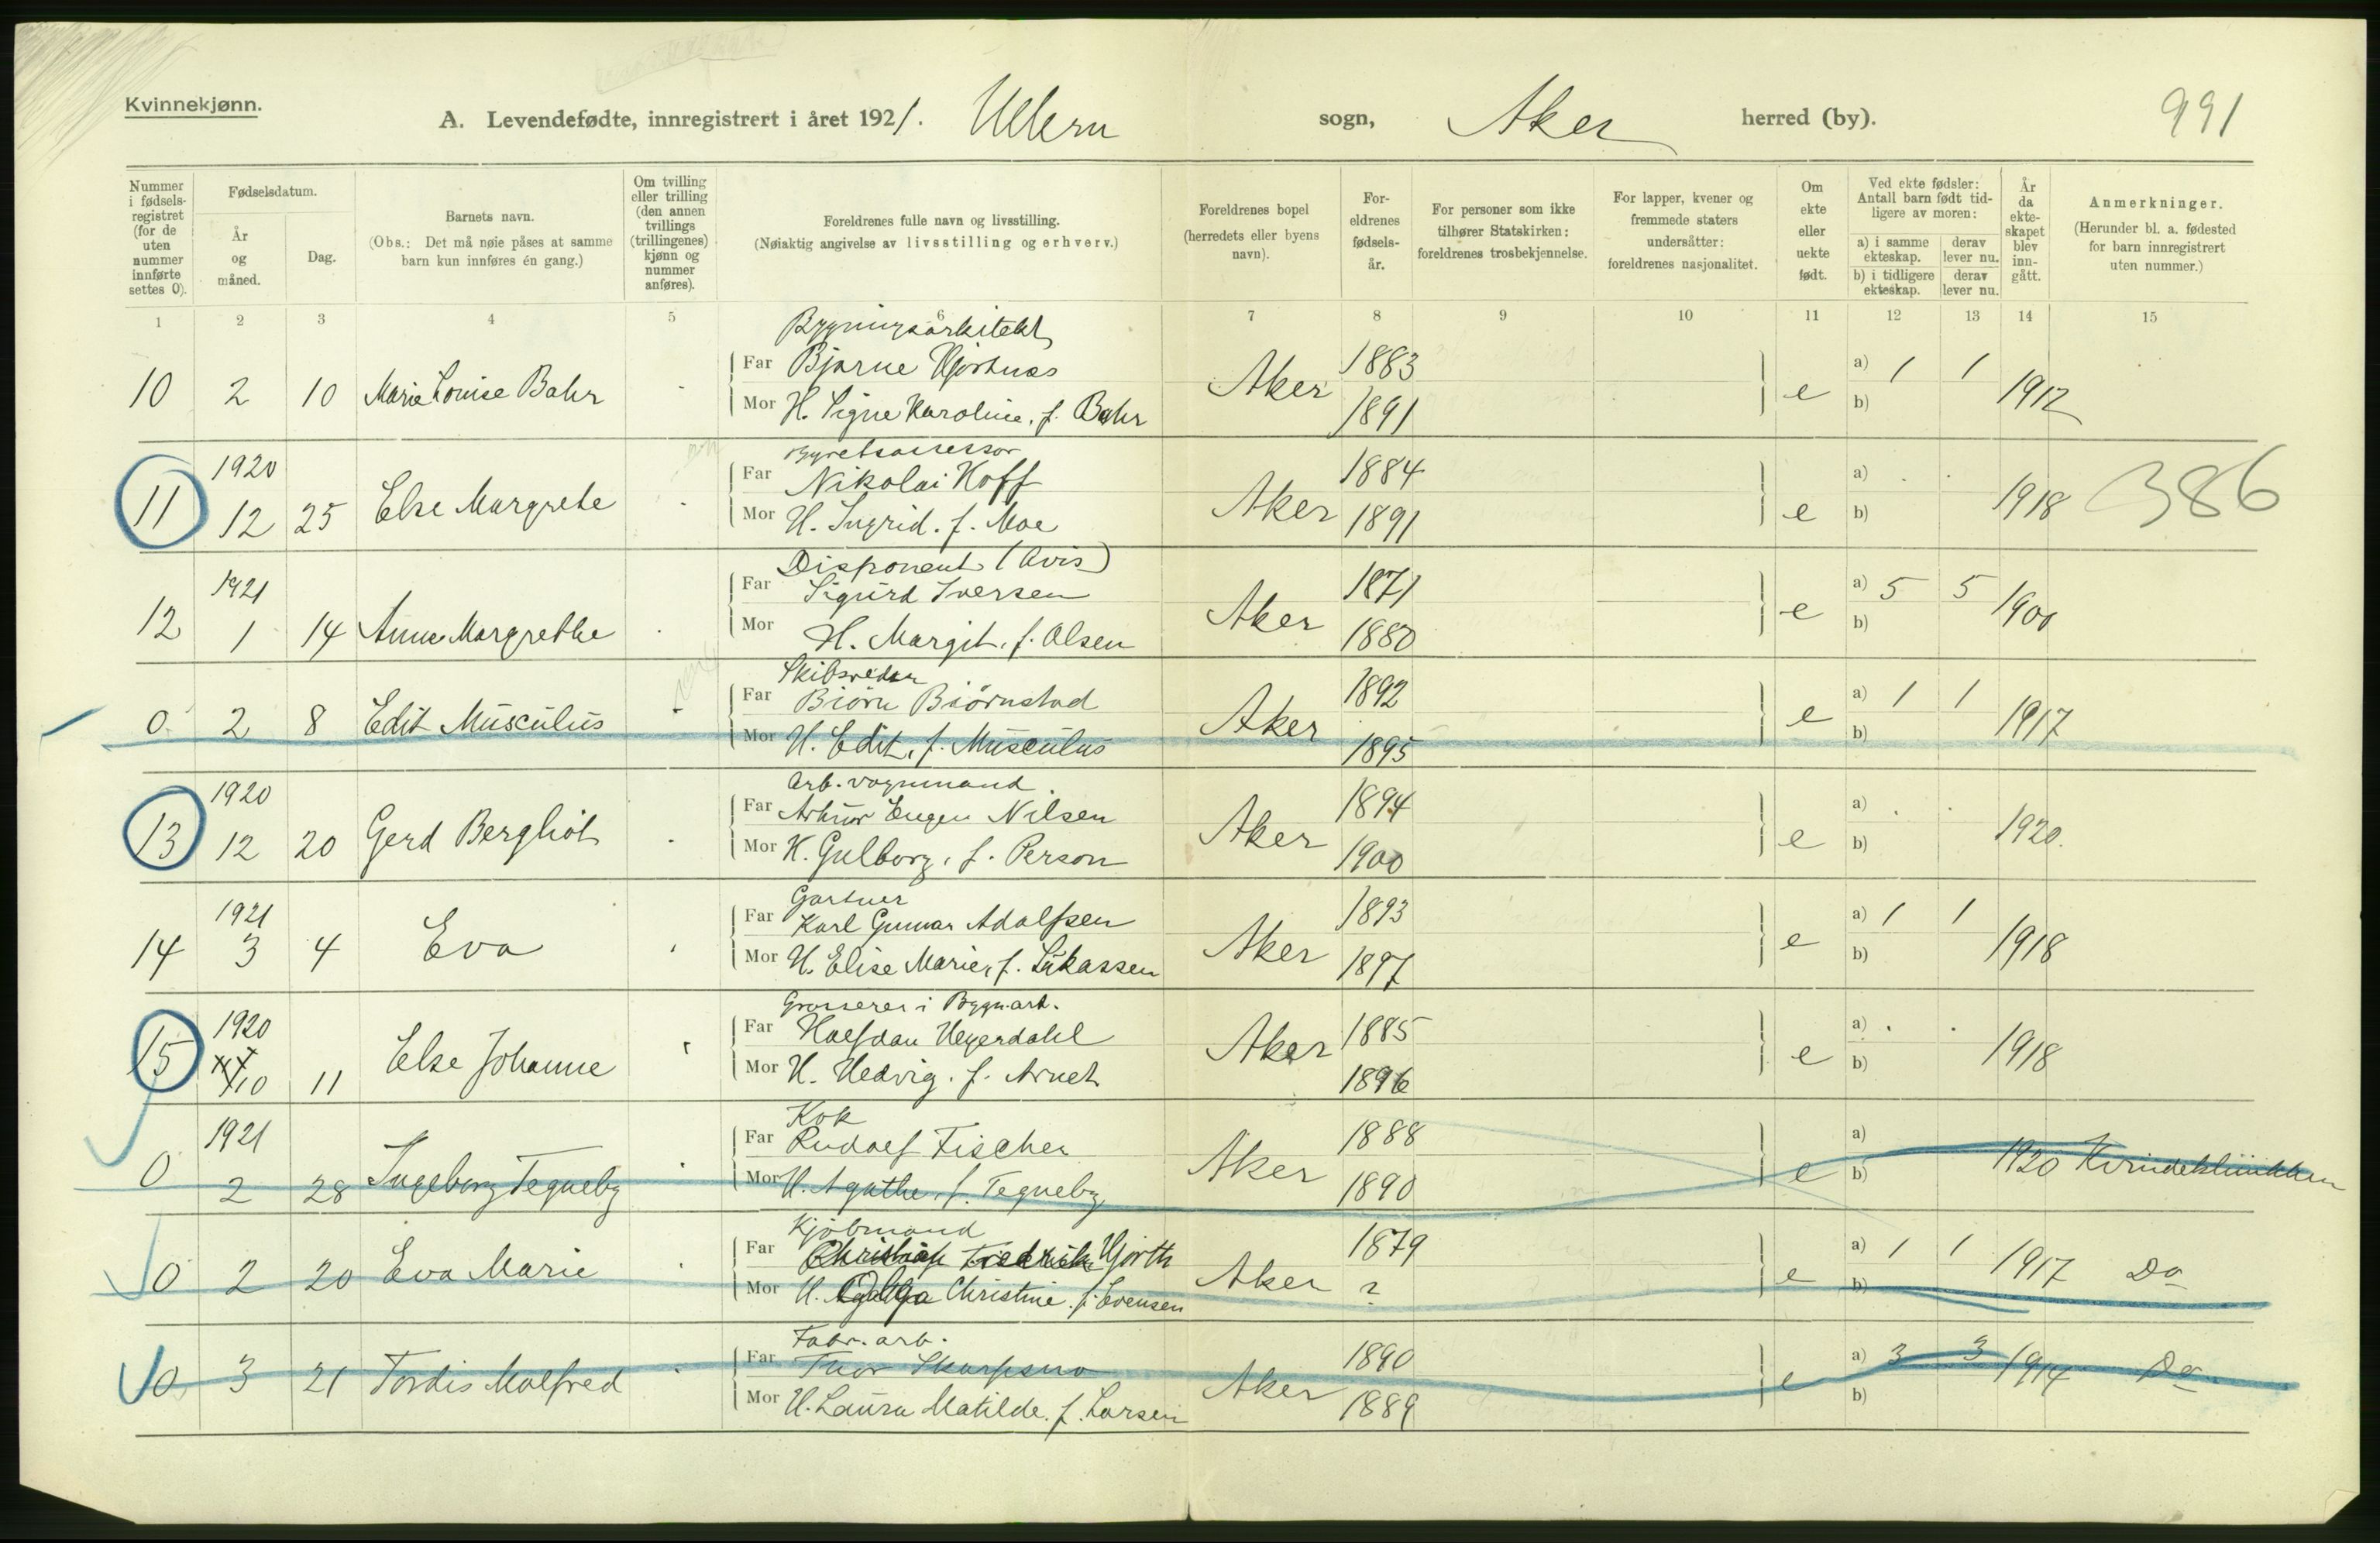 Kvinnekjønn.
A. Levendefødte, innregistrert i året 1921. Ullern sogn, Aker herred (by). 991
Nummer i fødsels-registret (for de uten nummer innførte settes 0).
Fødselsdatum.
År og måned.
Dag.
Barnets navn.
(Obs.: Det må nøie påses at samme barn kun innføres én gang.)
Om tvilling eller trilling (den annen tvillings (trillingenes) kjønn og nummer anføres).
Foreldrenes fulle navn og livsstilling.
(Nøiaktig angivelse av livsstilling og erhverv.)
Foreldrenes bopel (herredets eller byens navn).
For-eldrenes fødsels-år.
For personer som ikke tilhører Statskirken: foreldrenes trosbekjennelse.
For lapper, kvener og fremmede staters undersåtter: foreldrenes nasjonalitet.
Om ekte eller uekte født.
Ved ekte fødsler: Antall barn født tid-ligere av moren:
a) i samme ekteskap. derav lever nu.
b) i tidligere ekteskap. derav lever nu.
År da ekte-skapet blev inn-gått.
Anmerkninger.
(Herunder bl. a. fødested for barn innregistrert uten nummer.)
1 2 3 4 5 6 7 8 9 10 11 12 13 14 15
Bygningsarkitekt
Far Bjarne 1883 a) 1 1
10 2 10 Marie Louise Bahr Aker e 1912
Mor H. Signe Karoline, f. Bahr 1891 b)
1920 Byretsassessor
Far Nikolai Hoff 1884 a) . .
11 12 25 Else Margrete Aker e 1918 386
Mor H. Ingrid. f. Moe 1891 b)
1921 Disponent (Avis)
Far Sigurd Iversen 1871 a) 5 5
12 1 14 Anne Margrethe Aker e 1900
Mor H. Margit, f. Olsen 1880 b)
Skibsreder
Far Biörn Biörnstad 1892 a) 1 1
0 2 8 Edit Musculus Aker e 1917
Mor H. Edit, f. Musculus 1895 b)
1920 Arb. vognmand
Far Arthur Eugen Nilsen 1894 a) . .
13 12 20 Gerd Bergliot Aker e 1920.
Mor H. Gulborg, f. Person 1900 b)
1921 Gartner
Far Karl Gunnar Adolfsen 1893 a) 1 1
14 3 4 Eva Aker e 1918
Mor H. Elise Marie, f. Lukassen 1897 b)
1920 Grosserer i Bygn.art.
Far Halfdan Hegerdahl 1885 a) . .
15 10 11 Else Johanne Aker e 1918
Mor H. Hedvig. f. Arnet 1896 b)
1921 Kok
Far Rudolf Fischer 1888 a)
0 2 28 Ingeborg Tegneby Aker e 1920 Kvindeklinikken
Mor H. Agathe, f. Tegneby 1890 b)
Kjöbmand
Far Christian Fredrik Hjorth 1879 a) 1 1
0 2 20 Eva Marie Aker e 1917 Do
Mor H. Olga Christine f. Evensen ? b)
Fabr. arb.
Far Thor Skarpsno 1890 a) 3 3
0 3 21 Tordis Malfred Aker e 1914 Do
Mor H. Laura Matilde. f. Larsen 1889 b)